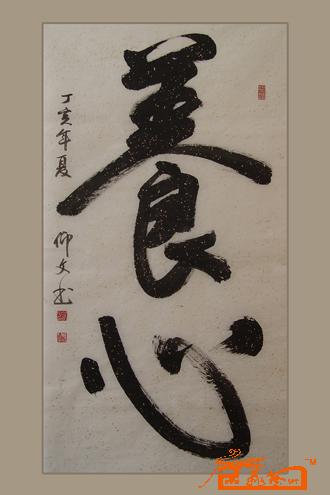 養心
丁亥年夏
仰文书